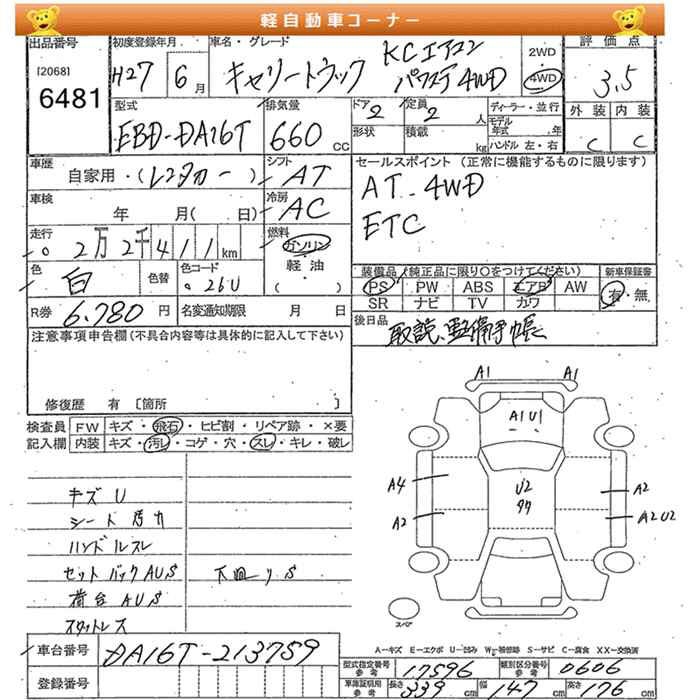 軽自動車コーナー
出品番号 初度登録年月 車名・グレード 評価点
[2068]
6481
H27 6月 キャリートラック KCエアコン パワステ 4WD
2WD
4WD
3.5
型式 排気量 ドア 定員 ディーラー・並行 外装 内装
EBD-DA16T 660 CC 2 2 人 モデル年式 .年 C C
形状 積載 kg ハンドル 左・右
車歴 シフト セールスポイント (正常に機能するものに限ります)
自家用・(レンタカー) AT AT 4WD
車検 冷房 ETC
年 月( 日) AC
走行 燃料
2万2千411km ガソリン
軽油
( )
色 色替 色コード
白 26U
装備品 (純正品に限り○をつけてください) 新車保証書
PS PW ABS エアB AW 有・無
SR ナビ TV カワ
R券 6,780円 名変通知期限 月 日
後日品 取説、整備手帳
注意事項申告欄(不具合内容等は具体的に記入して下さい)
修復歴 有 〔箇所 〕
検査員 FW キズ・飛石・ヒビ割・リペア跡・×要
記入欄 内装 キズ・汚レ・コゲ・穴・スレ・キレ・破レ
キズU
ハンドルスレ
セットバックAUS 下回りS
荷台AUS
スタットレス
A1 A1
A1 U1
A4 U2 A2
A2 A2U2
スペア
A-キズ E-エクボ U-凹み W-補修跡 S-サビ C-腐食 XX-交換済
車台番号 DA16T-213759
登録番号
型式指定番号 参考 17596 類別区分番号 参考 0606
車庫証明用 参考 長さ 339 cm 幅 147 cm 高さ 176 cm